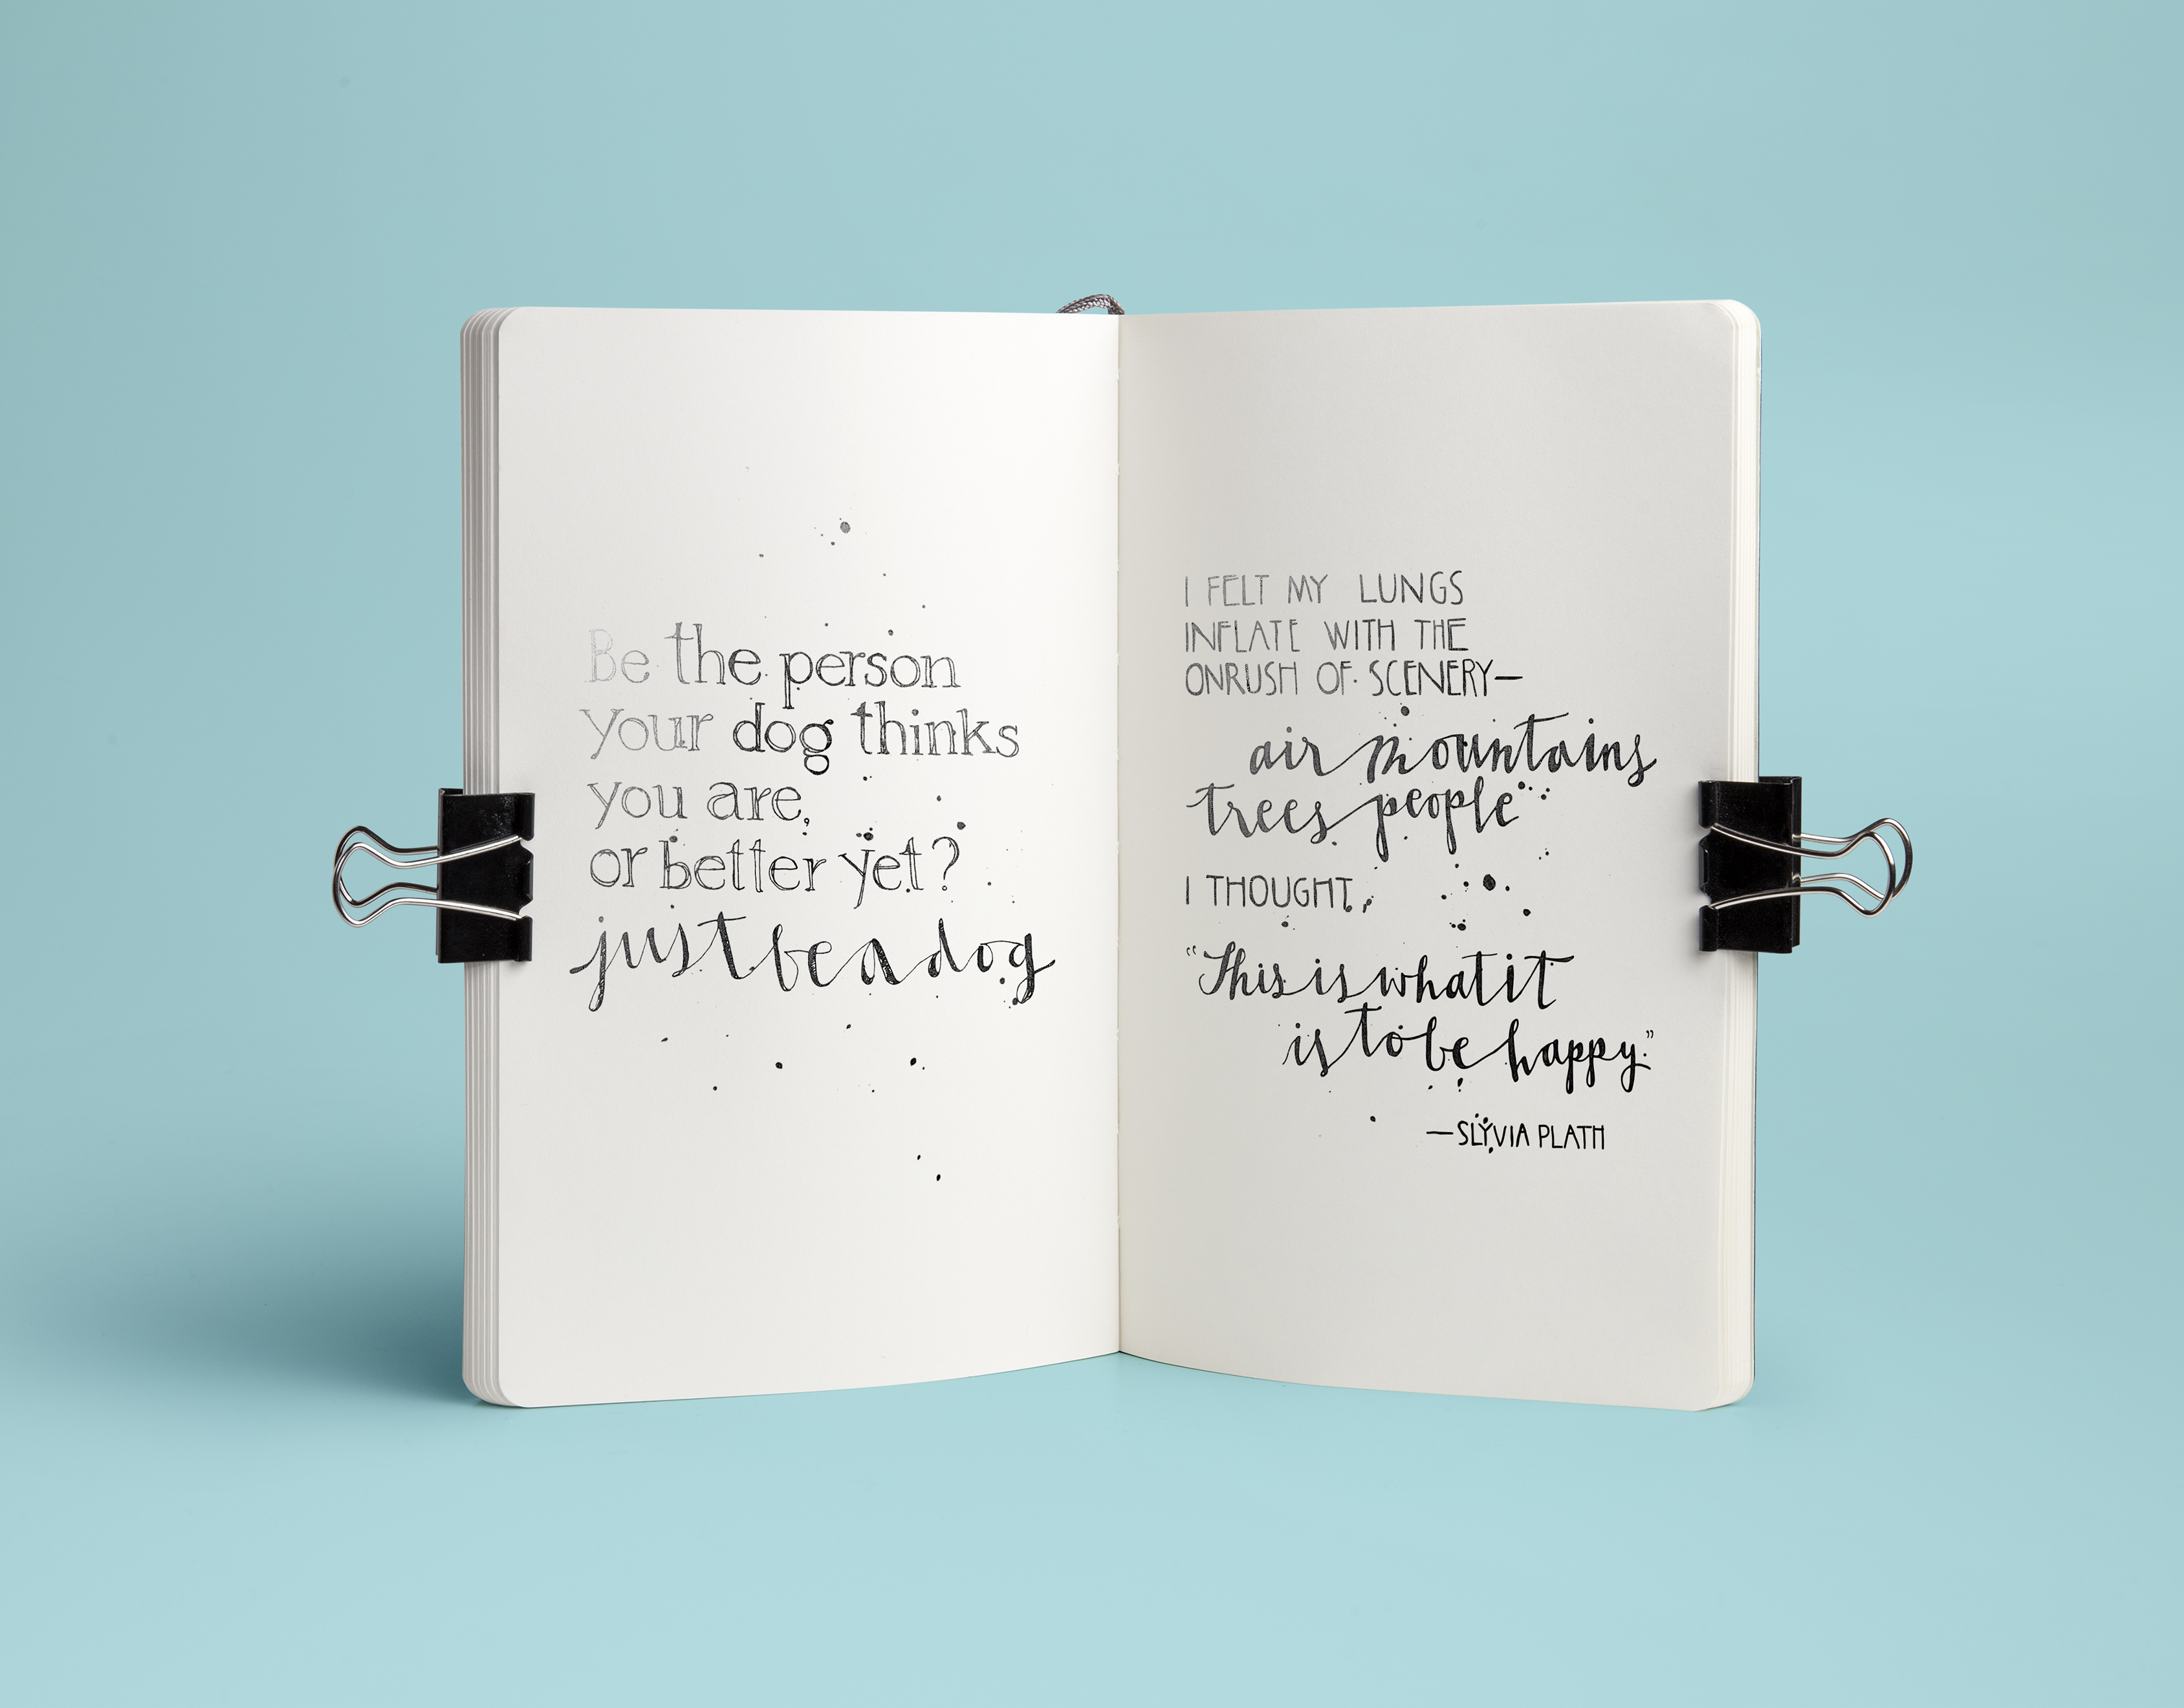 Be the person
your dog thinks
you are,
or better yet?
just be a dog
I FELT MY LUNGS
INFLATE WITH THE
ONRUSH OF SCENERY—
air mountains
trees people"
I THOUGHT,
"This is what it
is to be happy."
—SLYVIA PLATH